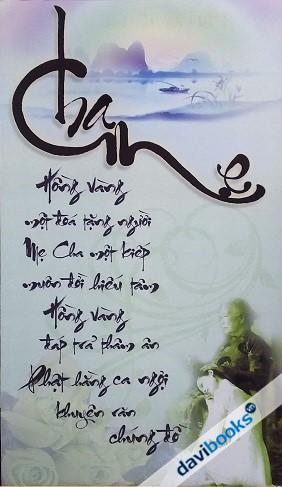 Cha Mẹ
Hồng vàng
một đoá tặng người
Mẹ Cha một kiếp
muôn đời hiếu tâm
Hồng vàng
đáp trả thâm ân
Phật hằng ca ngợi
khuyện răn
chúng đồ
davibooks.vn